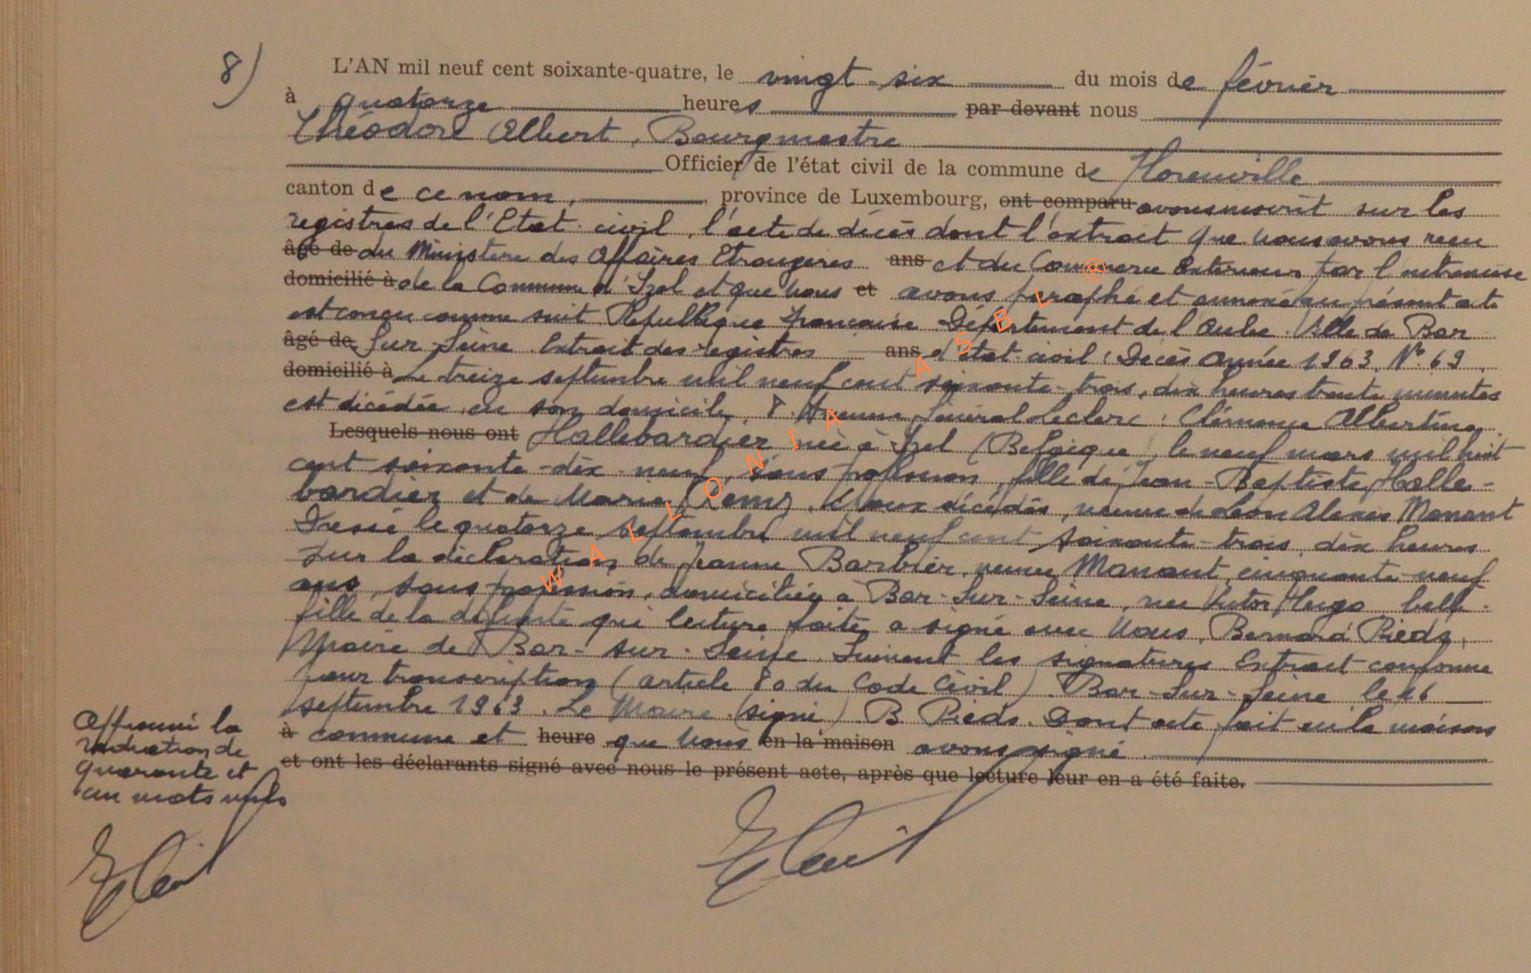 8) L'AN mil neuf cent soixante-quatre, le vingt-six du mois de février
à quatorze heures par devant nous
Théodore Albert, Bourgmestre
Officier de l'état civil de la commune de Florenville
canton de ce nom, province de Luxembourg, ont comparu avons inscrit sur les
registres de l'Etat-civil, l'acte de décès dont l'extrait que nous avons reçu
âgé de du Ministère des Affaires Etrangères ans et du Commerce Extérieur par l'entremise
domicilié à de la Commune d'Izel et que nous et avons paraphé et annexé au présent acte
est conçu comme suit République française Département de l'Aube. Ville de Bar
âgé de Sur Seine Extrait des registres ans d'état-civil. Décès année 1963. N° 69.
domicilié à Le treize septembre mil neuf cent soixante-trois, dix heures trente minutes
est décédée en son domicile 8 Avenue Général Leclerc : Clémence Albertine
Lesquels nous ont Hallebardier née à Izel (Belgique, le neuf mars mil huit
cent soixante-dix-neuf, sans profession, fille de Jean-Baptiste Halle-
bardier et de Marie Remy, époux décédés, veuve de Léon Alexis Manant
Dressé le quatorze septembre mil neuf cent soixante-trois, dix heures
sur la déclaration de Jeanne Barbier, veuve Manant, cinquante-neuf
ans, sans profession, domiciliée à Bar-Sur-Seine, rue Victor Hugo, belle-
fille de la défunte qui lecture faite a signé avec Nous, Bernard Pieds,
Maire de Bar-sur-Seine. Suivent les signatures Extrait conforme
pour transcription (article 80 du Code Civil) Bar-Sur-Seine le 16
septembre 1963. Le Maire (signé) B Pieds. Dont acte fait en la maison
à commune et heure que nous en la maison avons signé.
et ont les déclarants signé avec nous le présent acte, après que lecture leur en a été faite.
Approuvé la
radiation de
quarante et
un mots nuls
WALLONIA ASBL ®